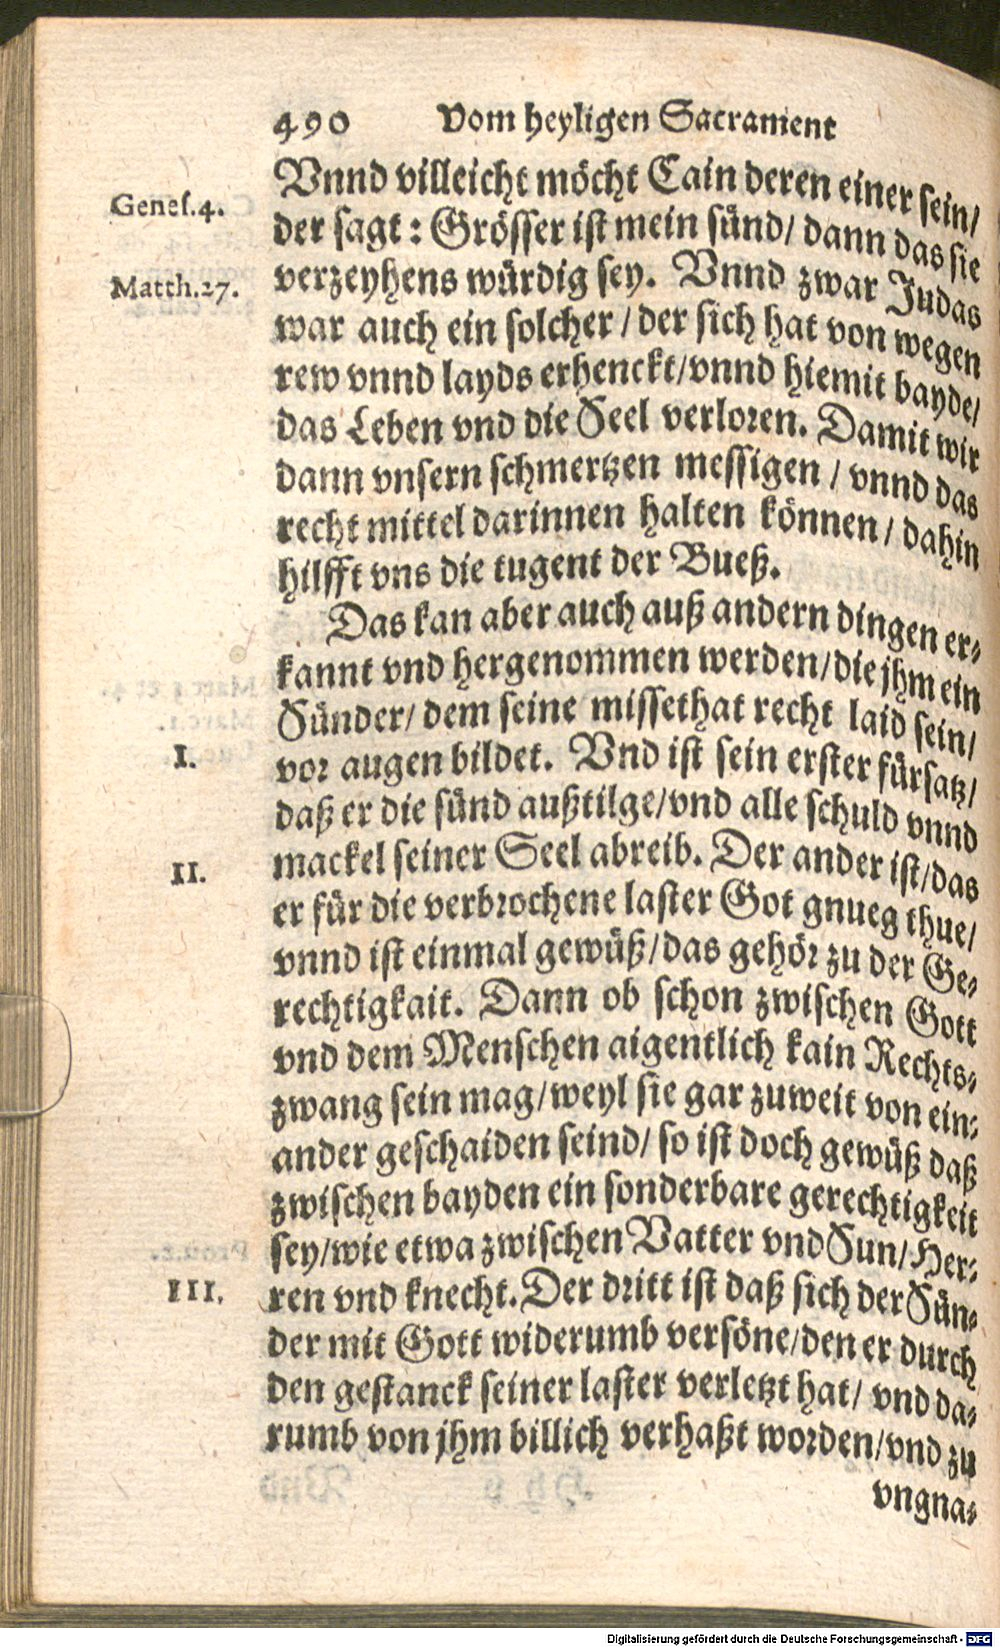 490 Vom heyligen Sacrament
Vnnd villeicht möcht Cain deren einer sein/
Genes.4.
der sagt: Grösser ist mein sünd/ dann das sie
verzeyhens würdig sey. Vnnd zwar Judas
Matth.27.
war auch ein solcher/ der sich hat von wegen
rew vnnd layds erhenckt/ vnnd hiemit bayde/
das Leben vnd die Seel verloren. Damit wir
dann vnsern schmertzen messigen/ vnnd das
recht mittel darinnen halten können/ dahin
hilfft vns die tugent der Bueß.
Das kan aber auch auß andern dingen er⸗
kannt vnd hergenommen werden/ die jhm ein
Sünder/ dem seine missethat recht laid sein/
I.
vor augen bildet. Vnd ist sein erster fürsatz/
daß er die sünd außtilge/ vnd alle schuld vnnd
II.
mackel seiner Seel abreib. Der ander ist/ das
er für die verbrochene laster Got gnueg thue/
vnnd ist einmal gewüß/ das gehör zu der Ge⸗
rechtigkait. Dann ob schon zwischen Gott
vnd dem Menschen aigentlich kain Rechts⸗
zwang sein mag/ weyl sie gar zuweit von ein⸗
ander geschaiden seind/ so ist doch gewüß daß
zwischen bayden ein sonderbare gerechtigkeit
sey/ wie etwa zwischen Vatter vnd Sun/ Her⸗
III.
ren vnd knecht. Der dritt ist daß sich der Sün⸗
der mit Gott widerumb versöne/ den er durch
den gestanck seiner laster verletzt hat/ vnd da⸗
rumb von jhm billich verhaßt worden/ vnd zu
vngna⸗
Digitalisierung gefördert durch die Deutsche Forschungsgemeinschaft - DFG